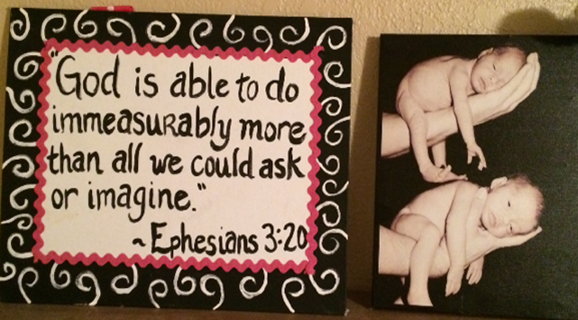 "God is able to do
immeasurably more
than all we could ask
or imagine."
~Ephesians 3:20